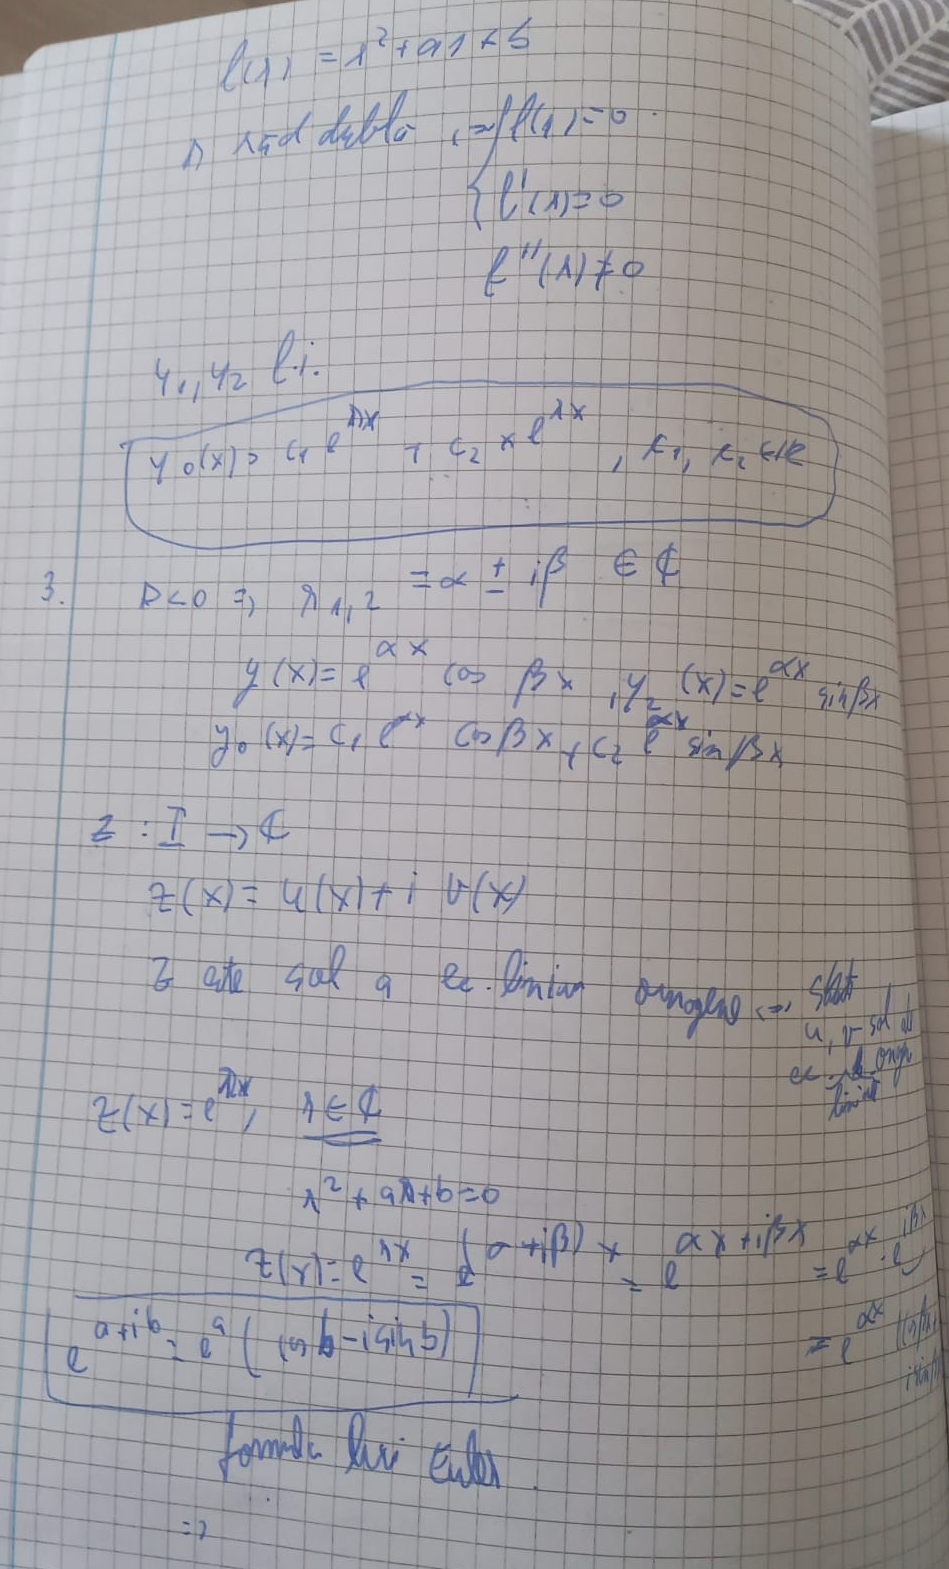 l(r) = r² + ar + b
r răd dublă, => { l(r) = 0
l'(r) = 0
l''(r) ≠ 0
y₁, y₂ l.i.
y₀(x) = c₁ e^{rx} + c₂ x e^{rx}, c₁, c₂ ∈ ℝ
3. Δ < 0 => r₁,₂ = α ± iβ ∈ ℂ
y(x) = e^{αx} cos βx, y₂(x) = e^{αx} sin βx
y₀(x) = c₁ e^{αx} cos βx + c₂ e^{αx} sin βx
z : I → ℂ
z(x) = u(x) + i v(x)
z este sol a ec. liniare omogene <=>
u, v sol ale
ec.
z(x) = e^{rx}, r ∈ ℂ
r² + ar + b = 0
z(x) = e^{rx} = e^{(α+iβ)x} = e^{αx+iβx} = e^{αx} · e^{iβx}
= e^{αx} (cos βx +
i sin βx
e^{a+ib} = e^a (cos b - i sin b)
formula lui Euler
=>